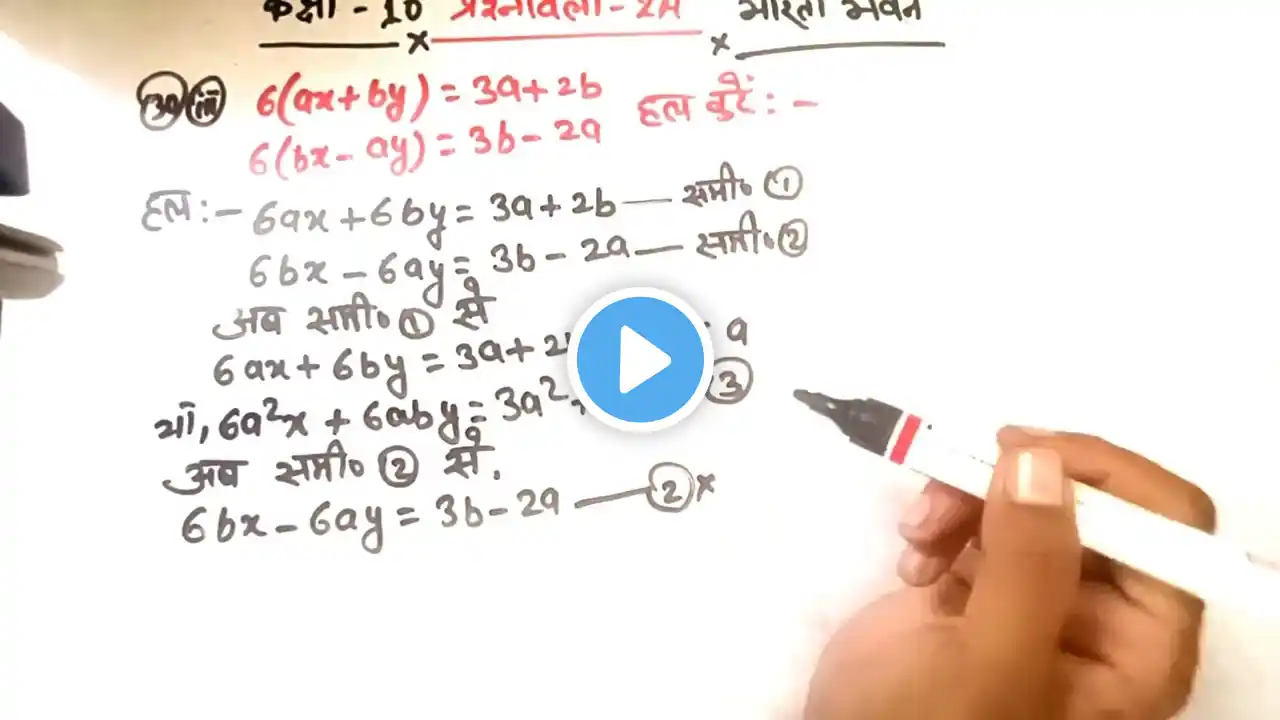 कक्षा - 10 प्रश्नावली - 2A भारती भवन
39 iii 6(ax+by) = 3a+2b हल करें : -
6(bx - ay) = 3b - 2a
हल :- 6ax + 6by = 3a + 2b — समी० ①
6bx - 6ay = 3b - 2a — समी० ②
अब समी० ① से
6ax + 6by = 3a + 2 a
या, 6a²x + 6aby = 3a² + ③
अब समी० ② से,
6bx - 6ay = 3b - 2a — ② ×